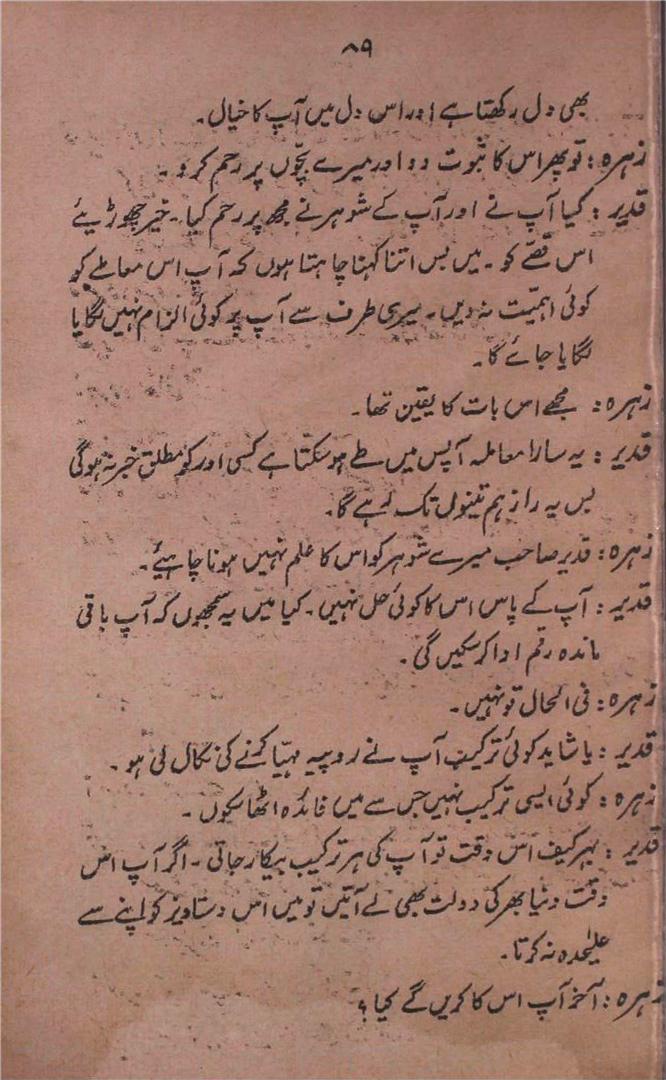 ۸۹
بھی دل رکھتا ہے اور اس دل میں آپ کا خیال۔
زہرہ : تو پھر اس کا ثبوت دو اور میرے بچّوں پر رحم کرو۔
قدیر : کیا آپ نے اور آپ کے شوہر نے مجھ پر رحم کیا۔ خیر چھوڑیئے
اس قصّے کو۔ میں بس اتنا کہنا چاہتا ہوں کہ آپ اس معاملے کو
کوئی اہمیّت نہ دیں۔ میری طرف سے آپ پر کوئی الزام نہیں لگایا
لگایا جائے گا۔
زہرہ : مجھے اس بات کا یقین تھا۔
قدیر : یہ سارا معاملہ آپس میں طے ہو سکتا ہے کسی اور کو مطلق خبر نہ ہوگی
بس یہ راز ہم تینوں تک رہے گا۔
زہرہ : قدیر صاحب میرے شوہر کو اس کا علم نہیں ہونا چاہیئے۔
قدیر : آپ کے پاس اس کا کوئی حل نہیں۔ کیا میں یہ سمجھوں کہ آپ باقی
ماندہ رقم ادا کر سکیں گی۔
زہرہ : فی الحال تو نہیں۔
قدیر : یا شاید کوئی ترکیب آپ نے روپیہ مہیّا کرنے کی نکال لی ہو۔
زہرہ : کوئی ایسی ترکیب نہیں جس سے میں فائدہ اٹھا سکوں۔
قدیر : بہرکیف اس وقت تو آپ کی ہر ترکیب بیکار جاتی۔ اگر آپ اس
وقت دنیا بھر کی دولت بھی لے آتیں تو میں اس دستاویز کو اپنے سے
علیٰحدہ نہ کرتا۔
زہرہ : آخر آپ اس کا کریں گے کیا ؟